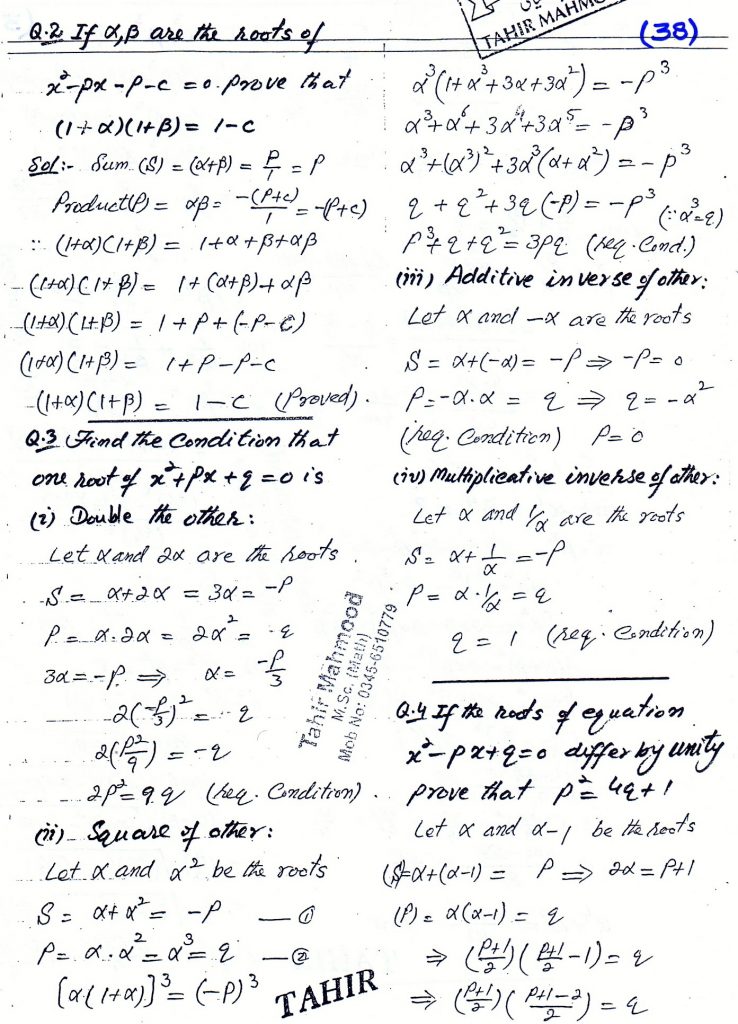 Q.2 If α,β are the roots of
x²-px-p-c = 0. prove that
(1+α)(1+β) = 1-c
Sol:- Sum (S) = (α+β) = P/1 = P
Product(P) = αβ = -(P+c)/1 = -(P+c)
∵ (1+α)(1+β) = 1+α+β+αβ
(1+α)(1+β) = 1+(α+β)+αβ
(1+α)(1+β) = 1+P+(-P-c)
(1+α)(1+β) = 1+P-P-c
(1+α)(1+β) = 1-c (Proved).
Q.3 Find the Condition that
one root of x²+px+q=0 is
(i) Double the other:
Let α and 2α are the roots
S = α+2α = 3α = -P
P = α.2α = 2α² = q
3α = -P ⇒ α = -P/3
2(-P/3)² = q
2(P²/9) = q
2P² = 9q (req. Condition).
(ii) Square of other:
Let α and α² be the roots
S = α+α² = -P — ①
P = α.α² = α³ = q — ②
[α(1+α)]³ = (-P)³
TAHIR
Tahir Mahmood
M.Sc. (Math)
Mob No: 0345-6510779
TAHIR
(38)
α³(1+α³+3α+3α²) = -P³
α³+α⁶+3α⁴+3α⁵ = -P³
α³+(α³)²+3α³(α+α²) = -P³
q+q²+3q(-P) = -P³ (∵α³=q)
P³+q+q² = 3Pq (req. Cond.)
(iii) Additive inverse of other:
Let α and -α are the roots
S = α+(-α) = -P ⇒ -P = 0
P = -α.α = q ⇒ q = -α²
(req. Condition) P = 0
(iv) Multiplicative inverse of other:
Let α and 1/α are the roots
S = α+1/α = -P
P = α.1/α = q
q = 1 (req. Condition)
Q.4 If the roots of equation
x²-px+q=0 differ by unity
prove that p² = 4q+1
Let α and α-1 be the roots
(S)=α+(α-1) = P ⇒ 2α = P+1
(P) = α(α-1) = q
⇒ (P+1/2)(P+1/2 -1) = q
⇒ (P+1/2)(P+1-2/2) = q